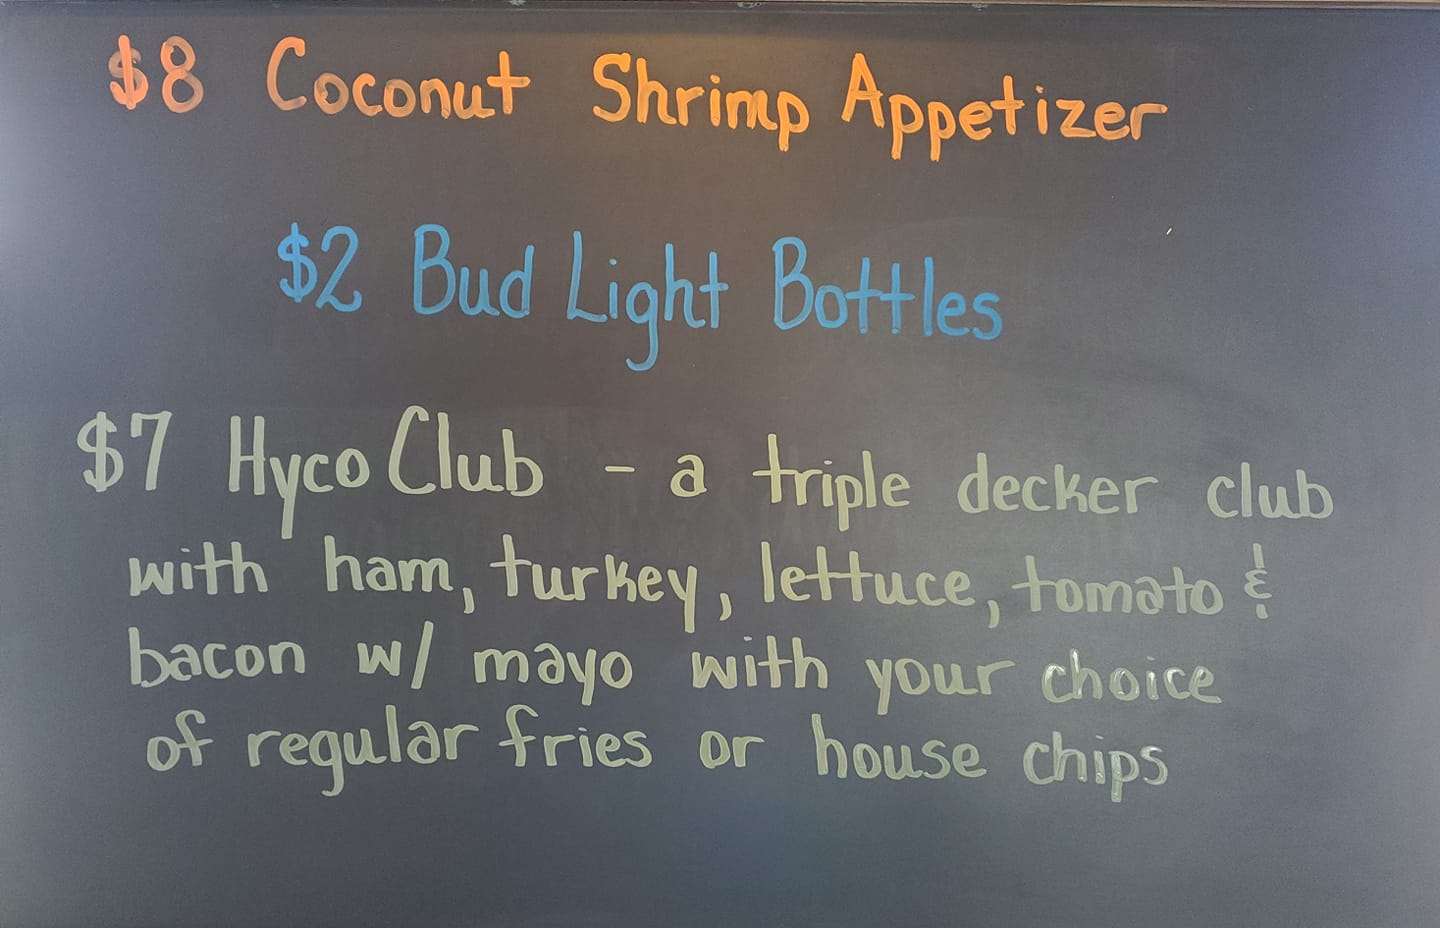 $8 Coconut Shrimp Appetizer
$2 Bud Light Bottles
$7 Hyco Club - a triple decker club
with ham, turkey, lettuce, tomato &
bacon w/ mayo with your choice
of regular fries or house chips